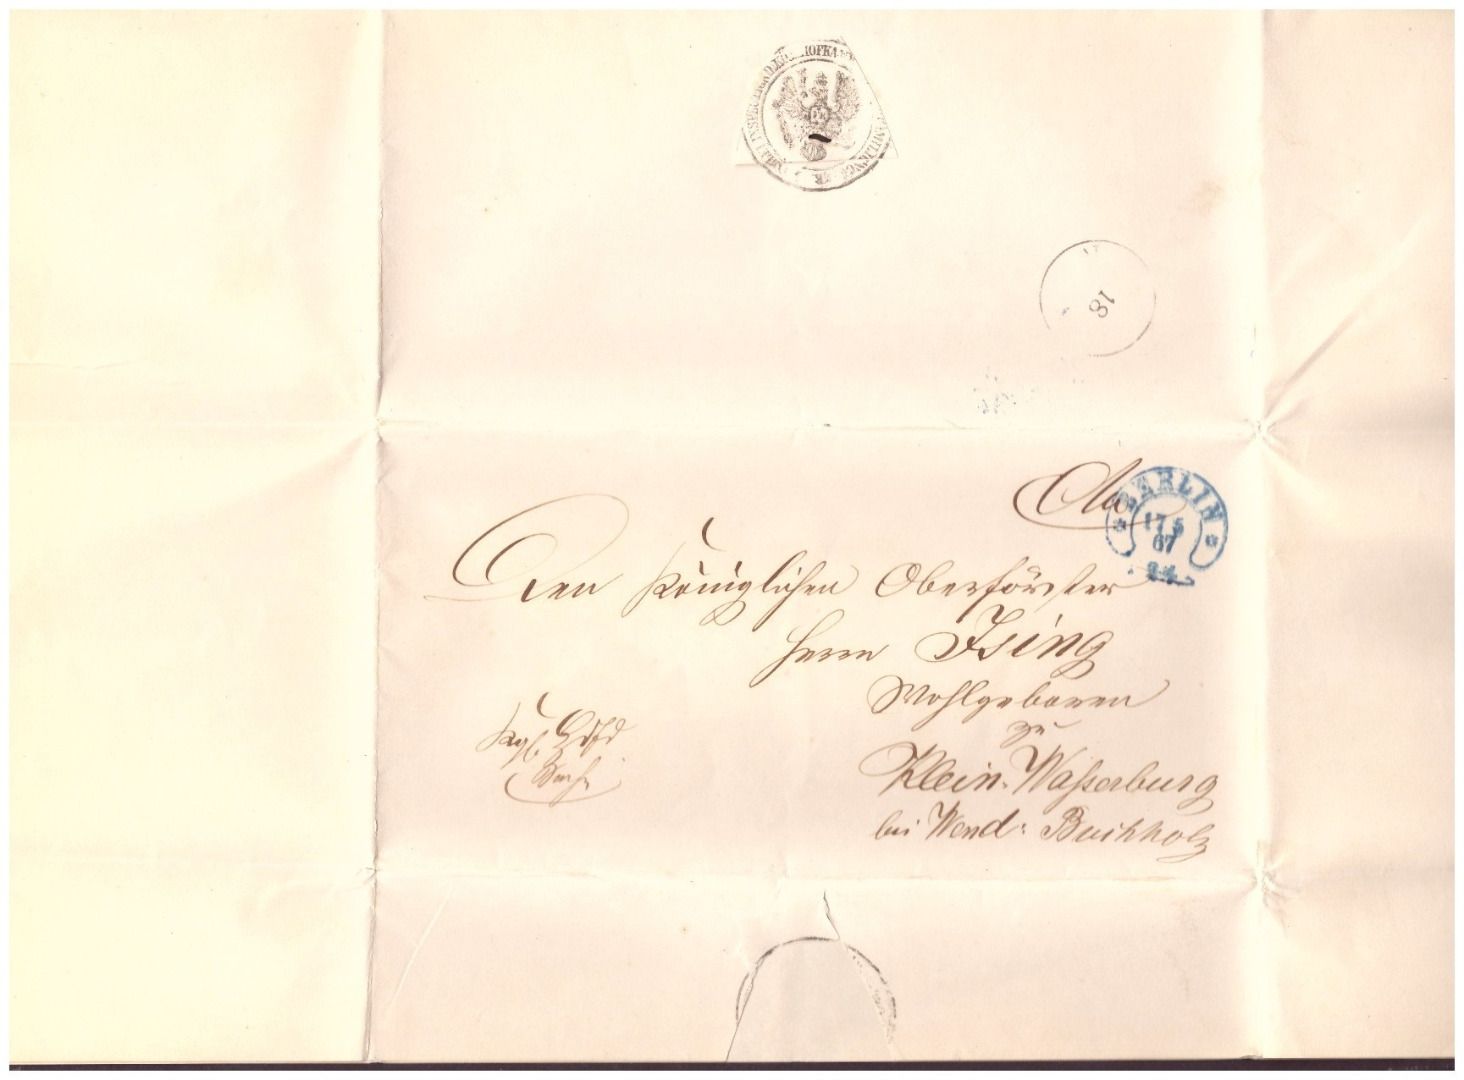 18
An
BERLIN
17 5
67
Den Königlichen Oberförster
Herrn Ising
Wohlgeboren
zu
Klein-Waßerburg
bei Wend: Buchholz
Kgl.
Sache